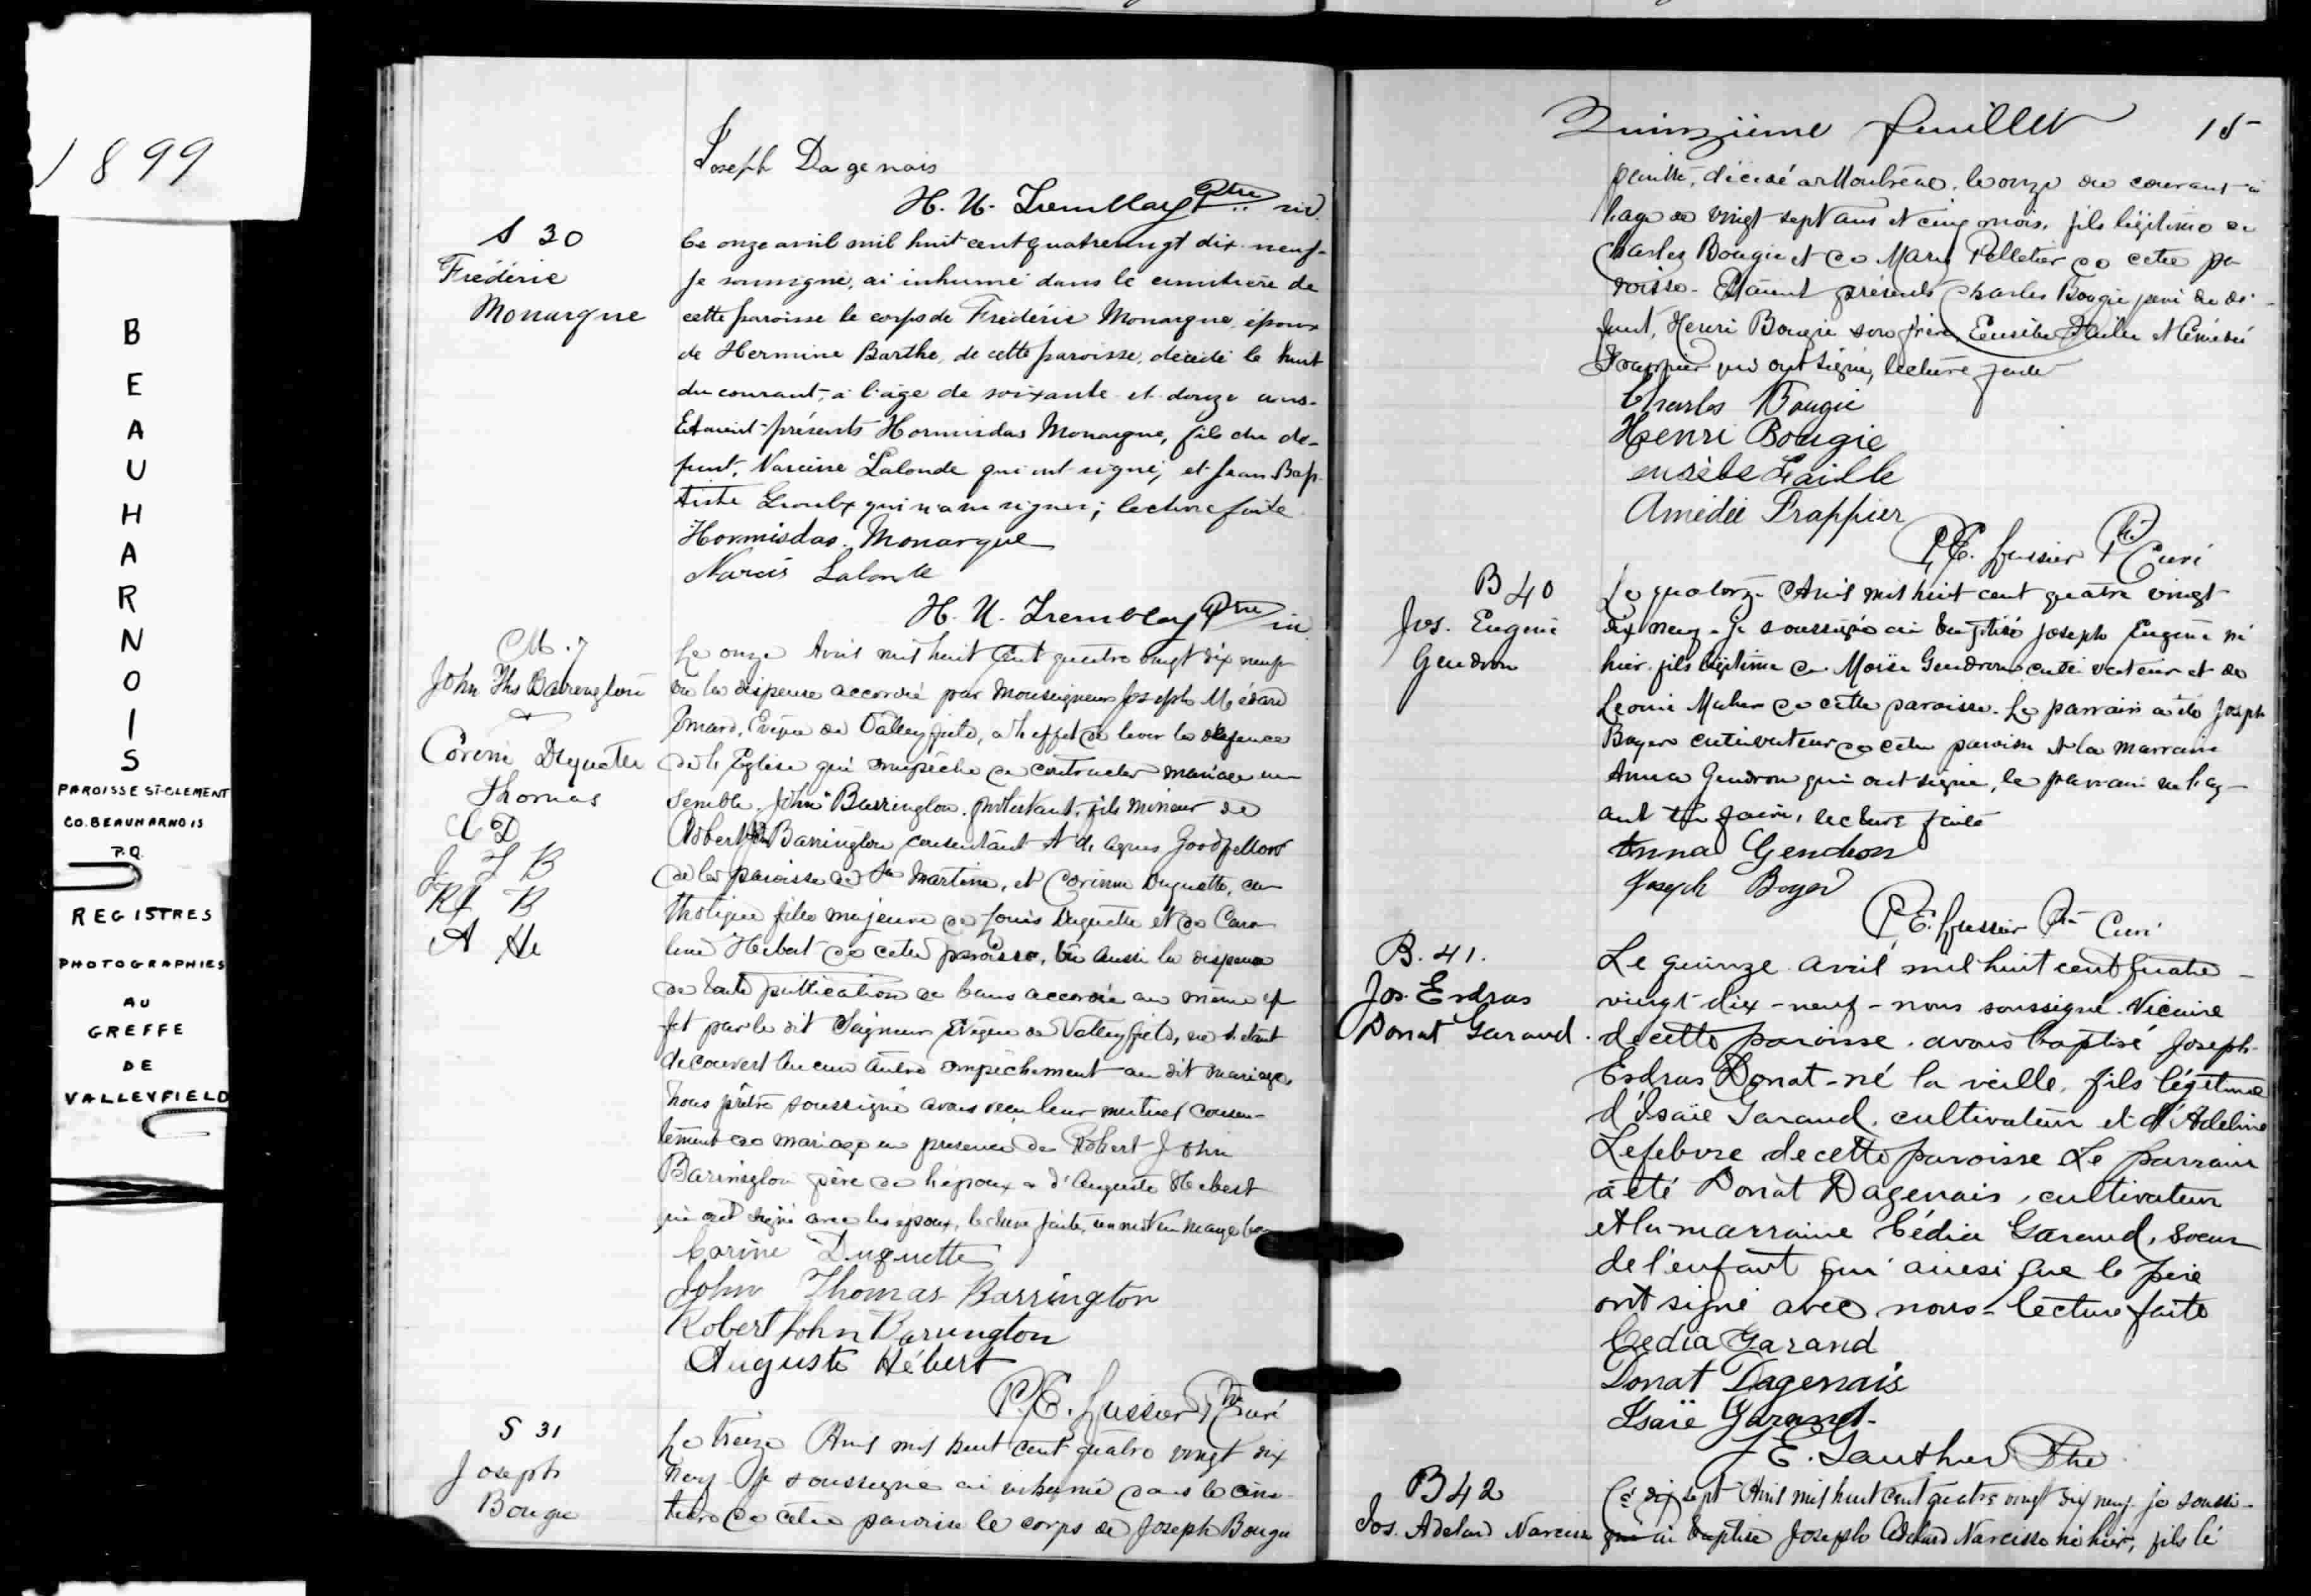 1899
BEAUHARNOIS
PAROISSE ST-CLEMENT
CO. BEAUHARNOIS
P.Q.
REGISTRES
PHOTOGRAPHIES
AU
GREFFE
DE
VALLEYFIELD
Joseph Dagenais
H. U. Tremblay Ptre vic.
S 30
Frédéric
Monarque
Le onze avril mil huit cent quatrevingt dix-neuf-
je soussigné, ai inhumé dans le cimitière de
cette paroisse le corps de Frédéric Monarque, époux
de Hermine Barthe, de cette paroisse, décédé le huit
du courant, à l'âge de soixante et douze ans.
Etaient présents Hormisdas Monarque, fils du dé-
funt, Narcisse Lalonde qui ont signé, et Jean Bap-
tiste Groulx qui n'a su signer; lecture faite.
Hormisdas Monarque
Narcis Lalonde
H. U. Tremblay Ptre vic.
M. 7
John Ths Barrington
&
Corine Duquette
Thomas
C D
J T B
R J B
A He
Le onze Avril mil huit cent quatre vingt dix neuf
vu la dispense accordée par Monseigneur Joseph Médard
Emard, Evêque de Valleyfield, a l'effet de lever la défence
de l'Eglise qui empêche de contracter mariage en-
semble John Barrington protestant, fils mineur de
Robert John Barrington consentant et de Agnes Goodfellow
de la paroisse de Ste Martine, et Corinne Duquette, ca-
tholique fille majeure de Louis Duquette et de Caro-
line Hebert de cette paroisse, vu aussi la dispense
de toute publication de bans accordée au même ef-
fet par le dit Seigneur Evêque de Valleyfield, ne s'étant
découvert aucun autre empêchement au dit mariage,
nous prêtre soussigné avons reçu leur mutuel consen-
tement de mariage en presence de Robert John
Barrington père de l'époux & d'Auguste Hebert
qui ont signé avec les époux, lecture faite,
Corine Duquette
John Thomas Barrington
Robert John Barrington
Auguste Hébert
P. E. Lussier Ptre Curé
S 31
Joseph
Bougie
Le treize Avril mil huit cent quatre vingt dix
neuf Je soussigné ai inhumé dans le cime-
tière de cette paroisse le corps de Joseph Bougie
Quinzième feuillet 15
peintre, décédé a Montréal, le onze du courant à
l'age de vingt sept ans et cinq mois, fils légitime de
Charles Bougie et de Mary Pelletier de cette pa-
roisse. Etaient présents Charles Bougie père du dé-
funt, Henri Bougie son frère, Eusèbe Faille et Amédée
Frappier qui ont signé, lecture faite
Charles Bougie
Henri Bougie
eusèbe Faille
Amédée Frappier
P. E. Lussier Ptre Curé
B 40
Jos. Eugene
Gendron
Le quatorze Avril mil huit cent quatre vingt
dix neuf. Je soussigné ai baptisé Joseph Eugène né
hier, fils légitime de Moïse Gendron cultivateur et de
Leonie Maher de cette paroisse. Le parrain a été Joseph
Boyer cultivateur de cette paroisse et la marraine
Anna Gendron qui ont signé, le parrain ne l'ay-
ant su faire, lecture faite
Anna Gendron
Joseph Boyer
P. E. Lussier Ptre Curé
B. 41.
Jos. Esdras
Donat Garand.
Le quinze avril mil huit cent quatre-
vingt-dix-neuf-nous soussigné. Vicaire
de cette paroisse. avons baptisé Joseph-
Esdras Donat-né la veille, fils légitime
d'Isaïe Garand, cultivateur et d'Adeline
Lefebvre de cette paroisse Le parrain
a été Donat Dagenais, cultivateur
et la marraine Cédia Garand, soeur
de l'enfant qui ainsi que le père
ont signé avec nous-lecture faite
Cedia Garand
Donat Dagenais
Isaïe Garand-
J. E. Gauthier Ptre
B 42
Jos. Adelard Narcisse
Le dix sept Avril mil huit cent quatre vingt dix neuf je soussi-
gné ai baptisé Joseph Adelard Narcisse né hier, fils lé